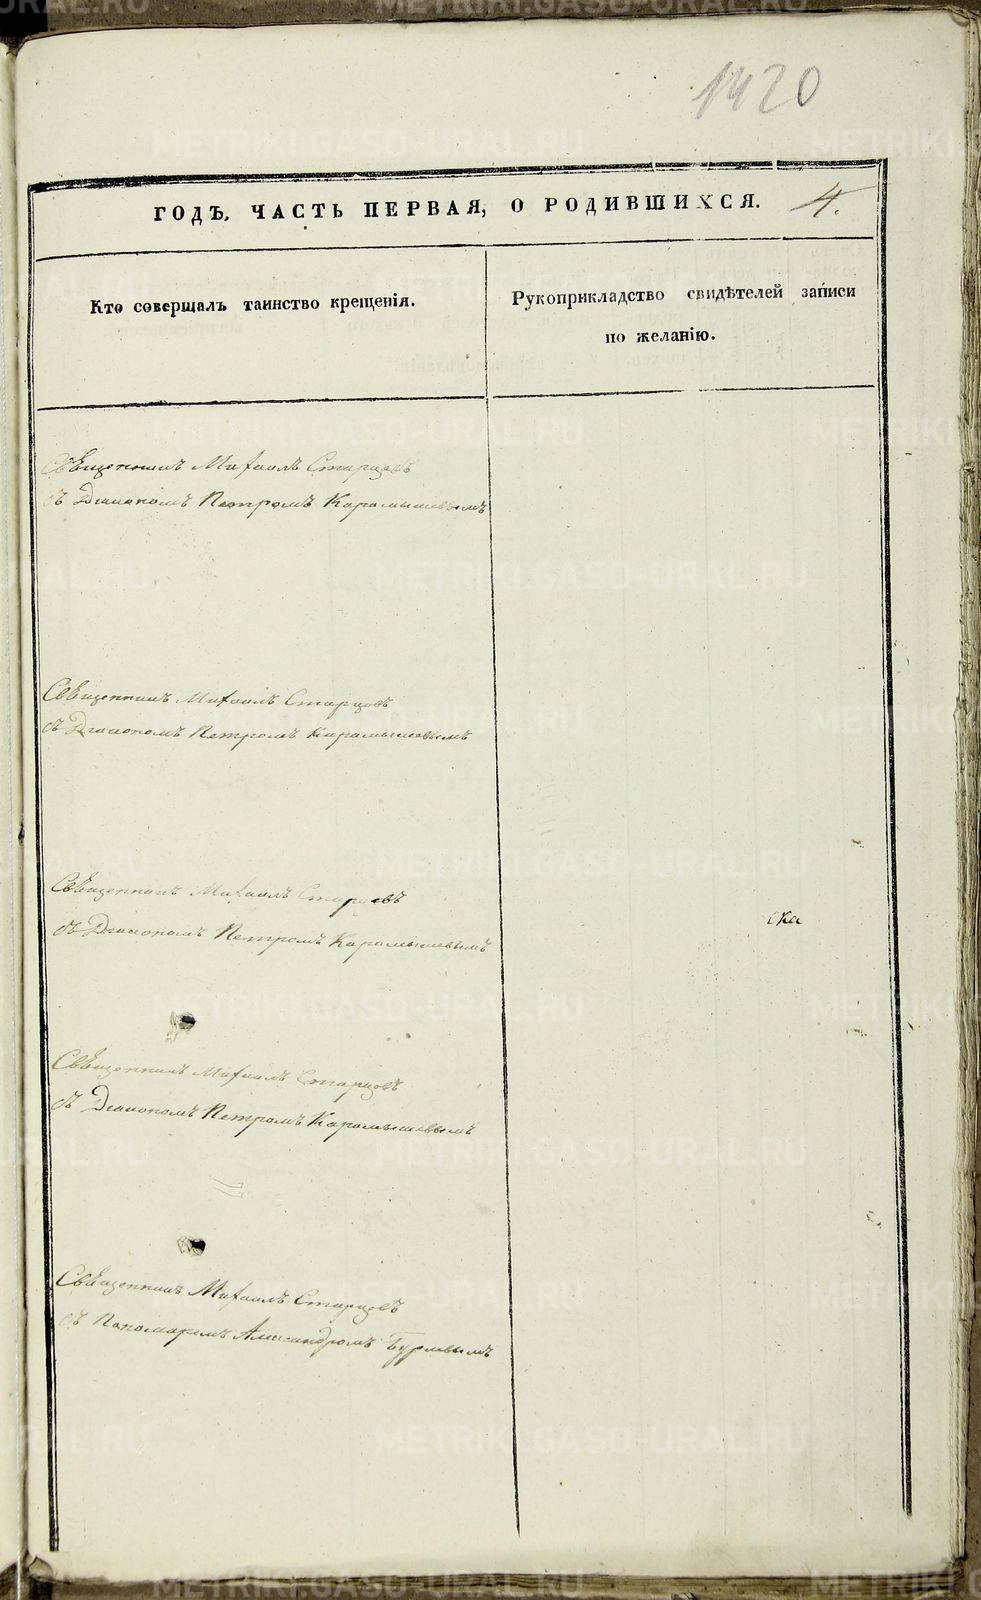 1420
ГОДЪ, ЧАСТЬ ПЕРВАЯ, О РОДИВШИХСЯ. 4.
Кто совершалъ таинство крещенія.
Рукоприкладство свидѣтелей записи
по желанію.
Священникъ Михаилъ Старцовъ
съ Діакономъ Петромъ Карамышевымъ
Священникъ Михаилъ Старцовъ
съ Діакономъ Петромъ Карамышевымъ
Священникъ Михаилъ Старцевъ
съ Діакономъ Петромъ Карамышевымъ
ска
Священникъ Михаилъ Старцовъ
съ Діакономъ Петромъ Карамышевымъ
Священникъ Михаилъ Старцовъ
съ Пономаремъ Александромъ
METRIKI.GASO-URAL.RU